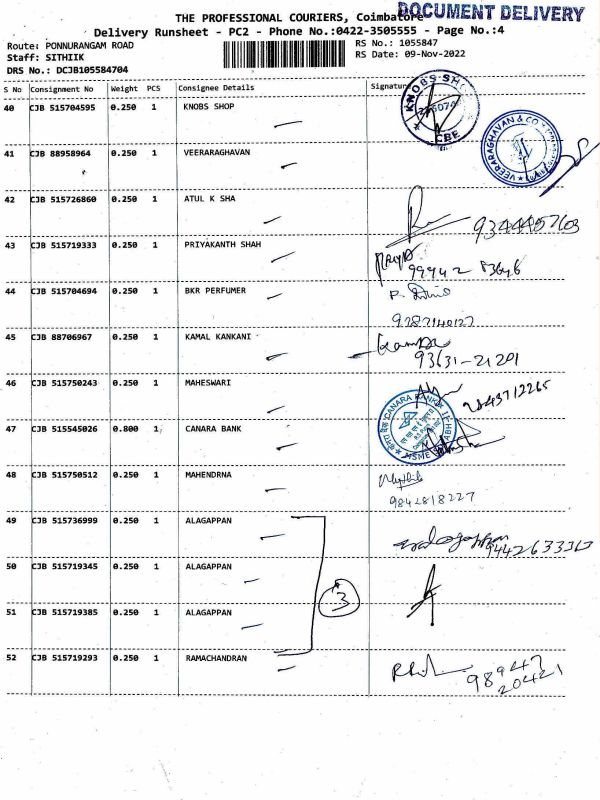 DOCUMENT DELIVERY
THE PROFESSIONAL COURIERS, Coimbatore
Delivery Runsheet - PC2 - Phone No.:0422-3505555 - Page No.:4
Route: PONNURANGAM ROAD
RS No.: 1055847
Staff: SITHIIK
RS Date: 09-Nov-2022
DRS No.: DCJB105584704
S No Consignment No Weight PCS Consignee Details Signature
40 CJB 515704595 0.250 1 KNOBS SHOP
KNOBS SHOP
CBE
41 CJB 88958964 0.250 1 VEERARAGHAVAN
VEERARAGHAVAN & CO
42 CJB 515726860 0.250 1 ATUL K SHA
9344457603
43 CJB 515719333 0.250 1 PRIYAKANTH SHAH
99942 83646
44 CJB 515704694 0.250 1 BKR PERFUMER
9287140127
45 CJB 88706967 0.250 1 KAMAL KANKANI
93631-21201
46 CJB 515750243 0.250 1 MAHESWARI
9843712265
47 CJB 515545026 0.800 1 CANARA BANK
CANARA BANK
MSME
48 CJB 515750512 0.250 1 MAHENDRNA
9842818227
49 CJB 515736999 0.250 1 ALAGAPPAN
9442633363
50 CJB 515719345 0.250 1 ALAGAPPAN
3
51 CJB 515719385 0.250 1 ALAGAPPAN
52 CJB 515719293 0.250 1 RAMACHANDRAN
98947
20421